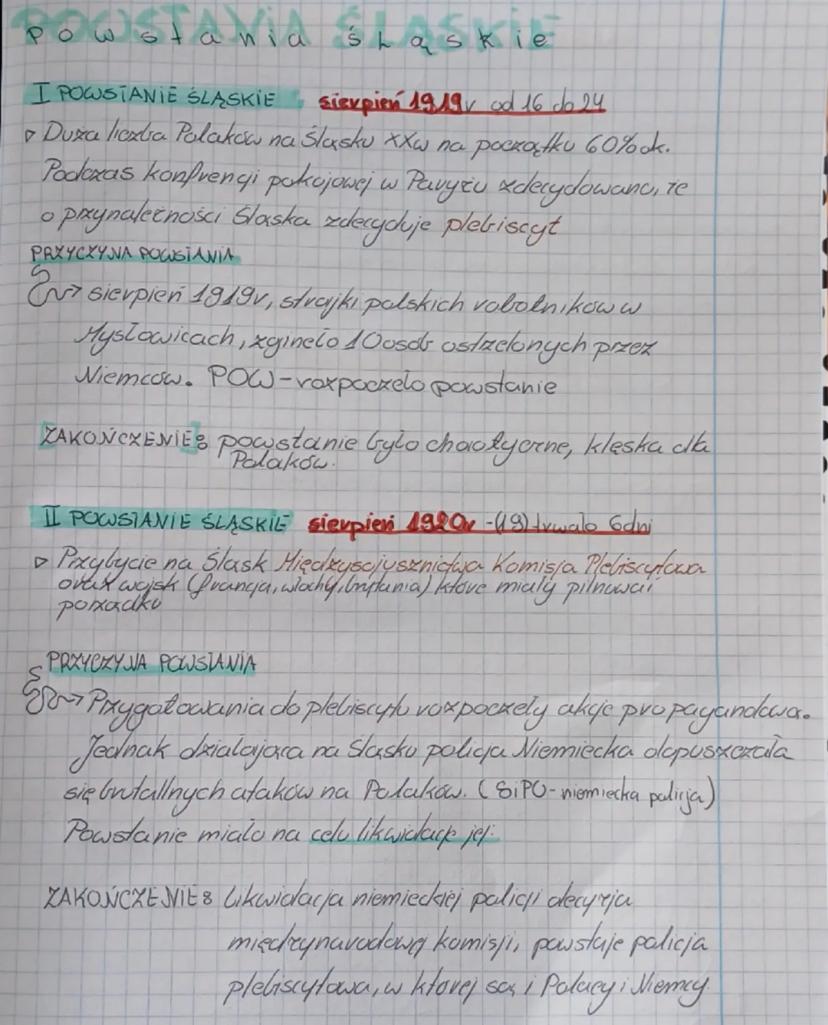 POWSTANIA ŚLĄSKIE
Powstania śląskie
I POWSTANIE ŚLĄSKIE sierpień 1919r od 16 do 24
Duża liczba Polaków na Śląsku XXw na początku 60% ok.
Podczas konfrencji pokojowej w Paryżu zdecydowano, że
o przynależności Śląska zdecyduje plebiscyt
PRZYCZYNA POWSTANIA
sierpień 1919r, strajki polskich robotników w
Mysłowicach, zgineło 10 osób ostrzelonych przez
Niemców. POW-rozpoczeło powstanie
ZAKOŃCZENIE: powstanie było chaotyczne, klęska dla
Polaków.
II POWSTANIE ŚLĄSKIE sierpień 1920r -(19) trwało 6dni
Przybycie na Śląsk Międzysojusznictwa Komisja Plebiscytowa
oraz wojsk (francja, włochy, brytania) które miały pilnować
porządku
PRZYCZYNA POWSTANIA
Przygotowania do plebiscytu rozpoczeły akcje propagandowa.
Jednak działająca na Śląsku policja Niemiecka dopuszczała
się brutallnych ataków na Polaków. (SiPO-niemiecka policja)
Powstanie miało na celu likwidacje jej.
ZAKOŃCZENIE: likwidacja niemieckiej policji decyzja
międzynarodowej komisji, powstaje policja
plebiscytowa, w której są i Polacy i Niemcy